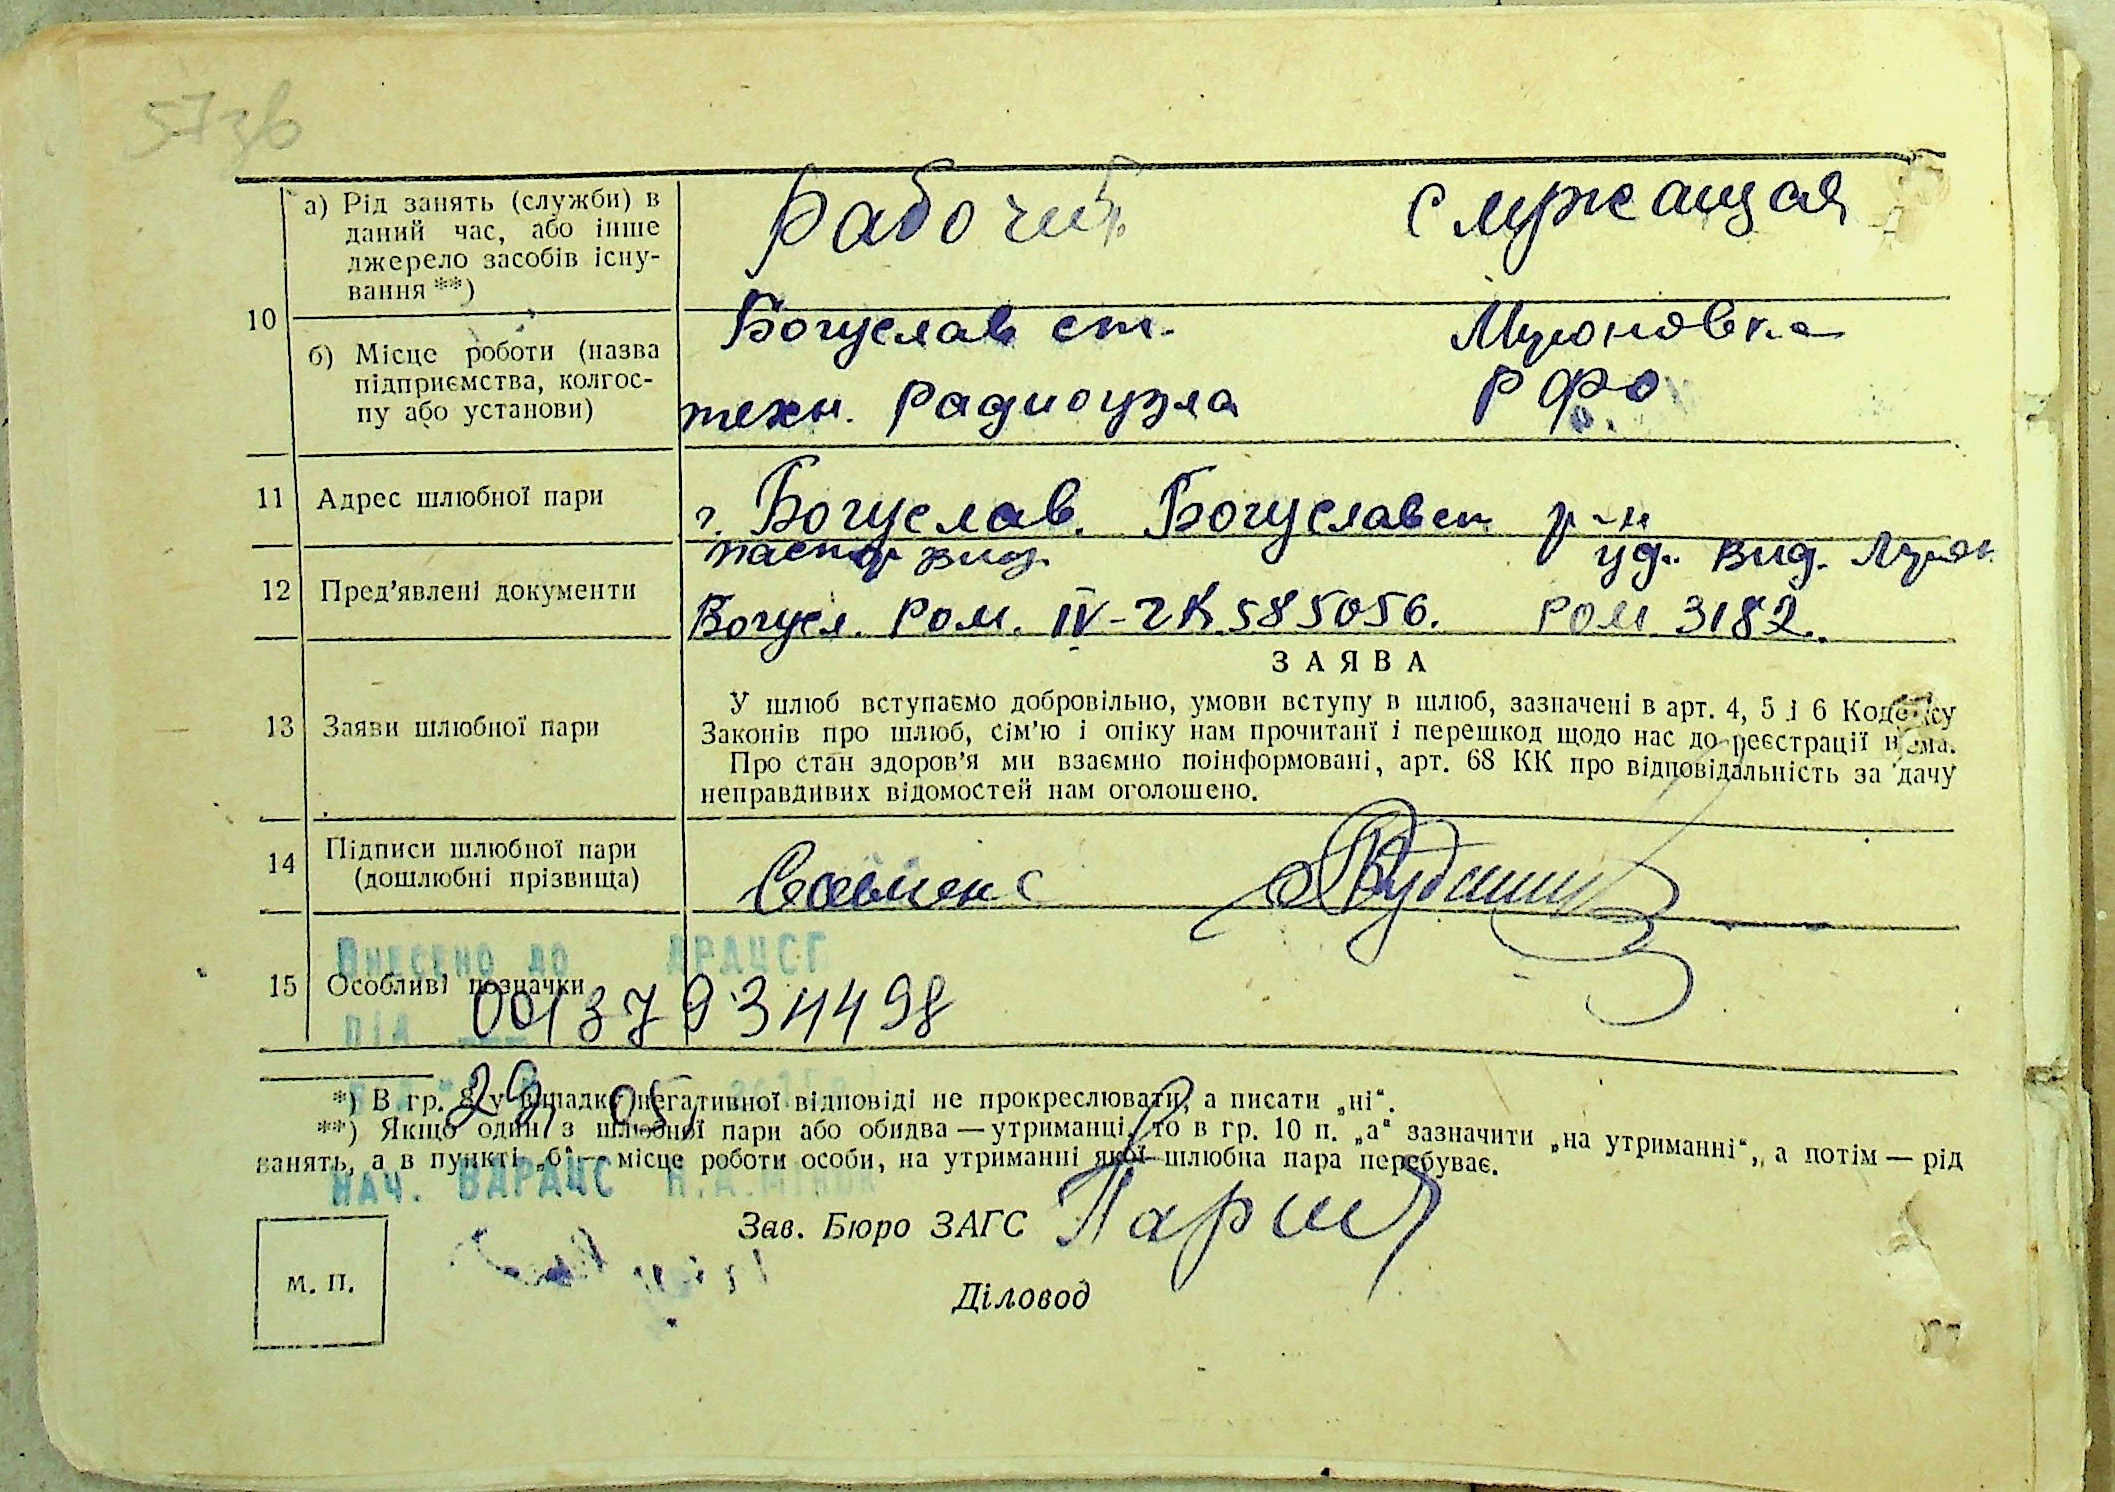 57зв
а) Рід занять (служби) в
даний час, або інше
джерело засобів існу-
вання **)
Рабочий Служащая
10
б) Місце роботи (назва
підприємства, колгос-
пу або установи)
Богуслав ст.
техн. Радиоузла
Мироновка
РФО
11 Адрес шлюбної пари
г. Богуслав. Богуславск р-н
12 Пред’явлені документи
паспор вид. уд. вид. Мирон
Богусл. РОМ. IV-ЧК 585056. РОМ 3182.
13 Заяви шлюбної пари
ЗАЯВА
У шлюб вступаємо добровільно, умови вступу в шлюб, зазначені в арт. 4, 5 і 6 Кодексу
Законів про шлюб, сім’ю і опіку нам прочитані і перешкод щодо нас до реєстрації нема.
Про стан здоров’я ми взаємно поінформовані, арт. 68 КК про відповідальність за дачу
неправдивих відомостей нам оголошено.
14 Підписи шлюбної пари
(дошлюбні прізвища)
Внесено до ДРАЦСГ
15 Особливі позначки
під 00137934498
29 05
*) В гр. 8 у випадку негативної відповіді не прокреслювати, а писати „ні“.
**) Якщо один з шлюбної пари або обидва — утриманці, то в гр. 10 п. „а“ зазначити „на утриманні“, а потім — рід
занять, а в пункті „б“ — місце роботи особи, на утриманні якої шлюбна пара перебуває.
Нач. ВДРАЦС
Зав. Бюро ЗАГС
М. П.
Діловод